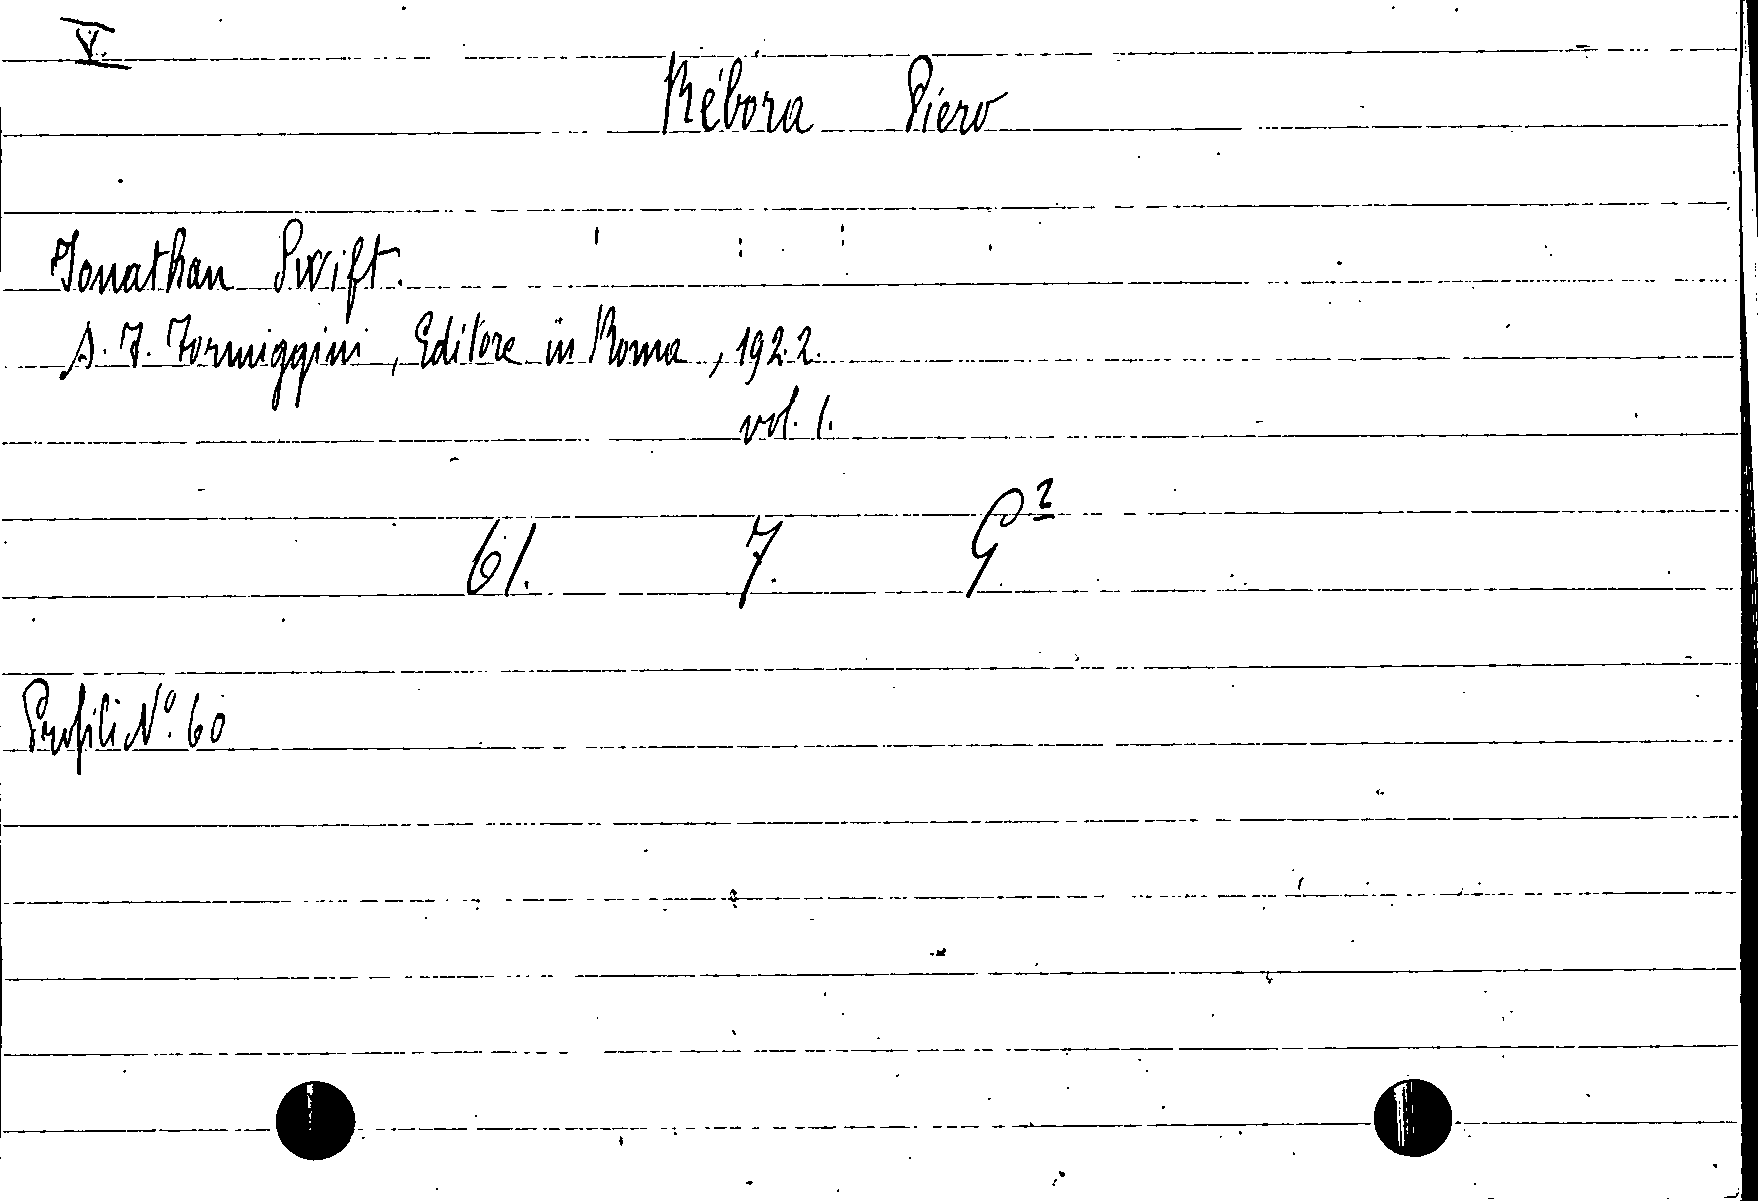 V.
Rébora Piero
Jonathan Swift.
A. F. Formiggini, Editore in Roma, 1922.
vol. 1.
61. 7. G²
Profili N.º 60